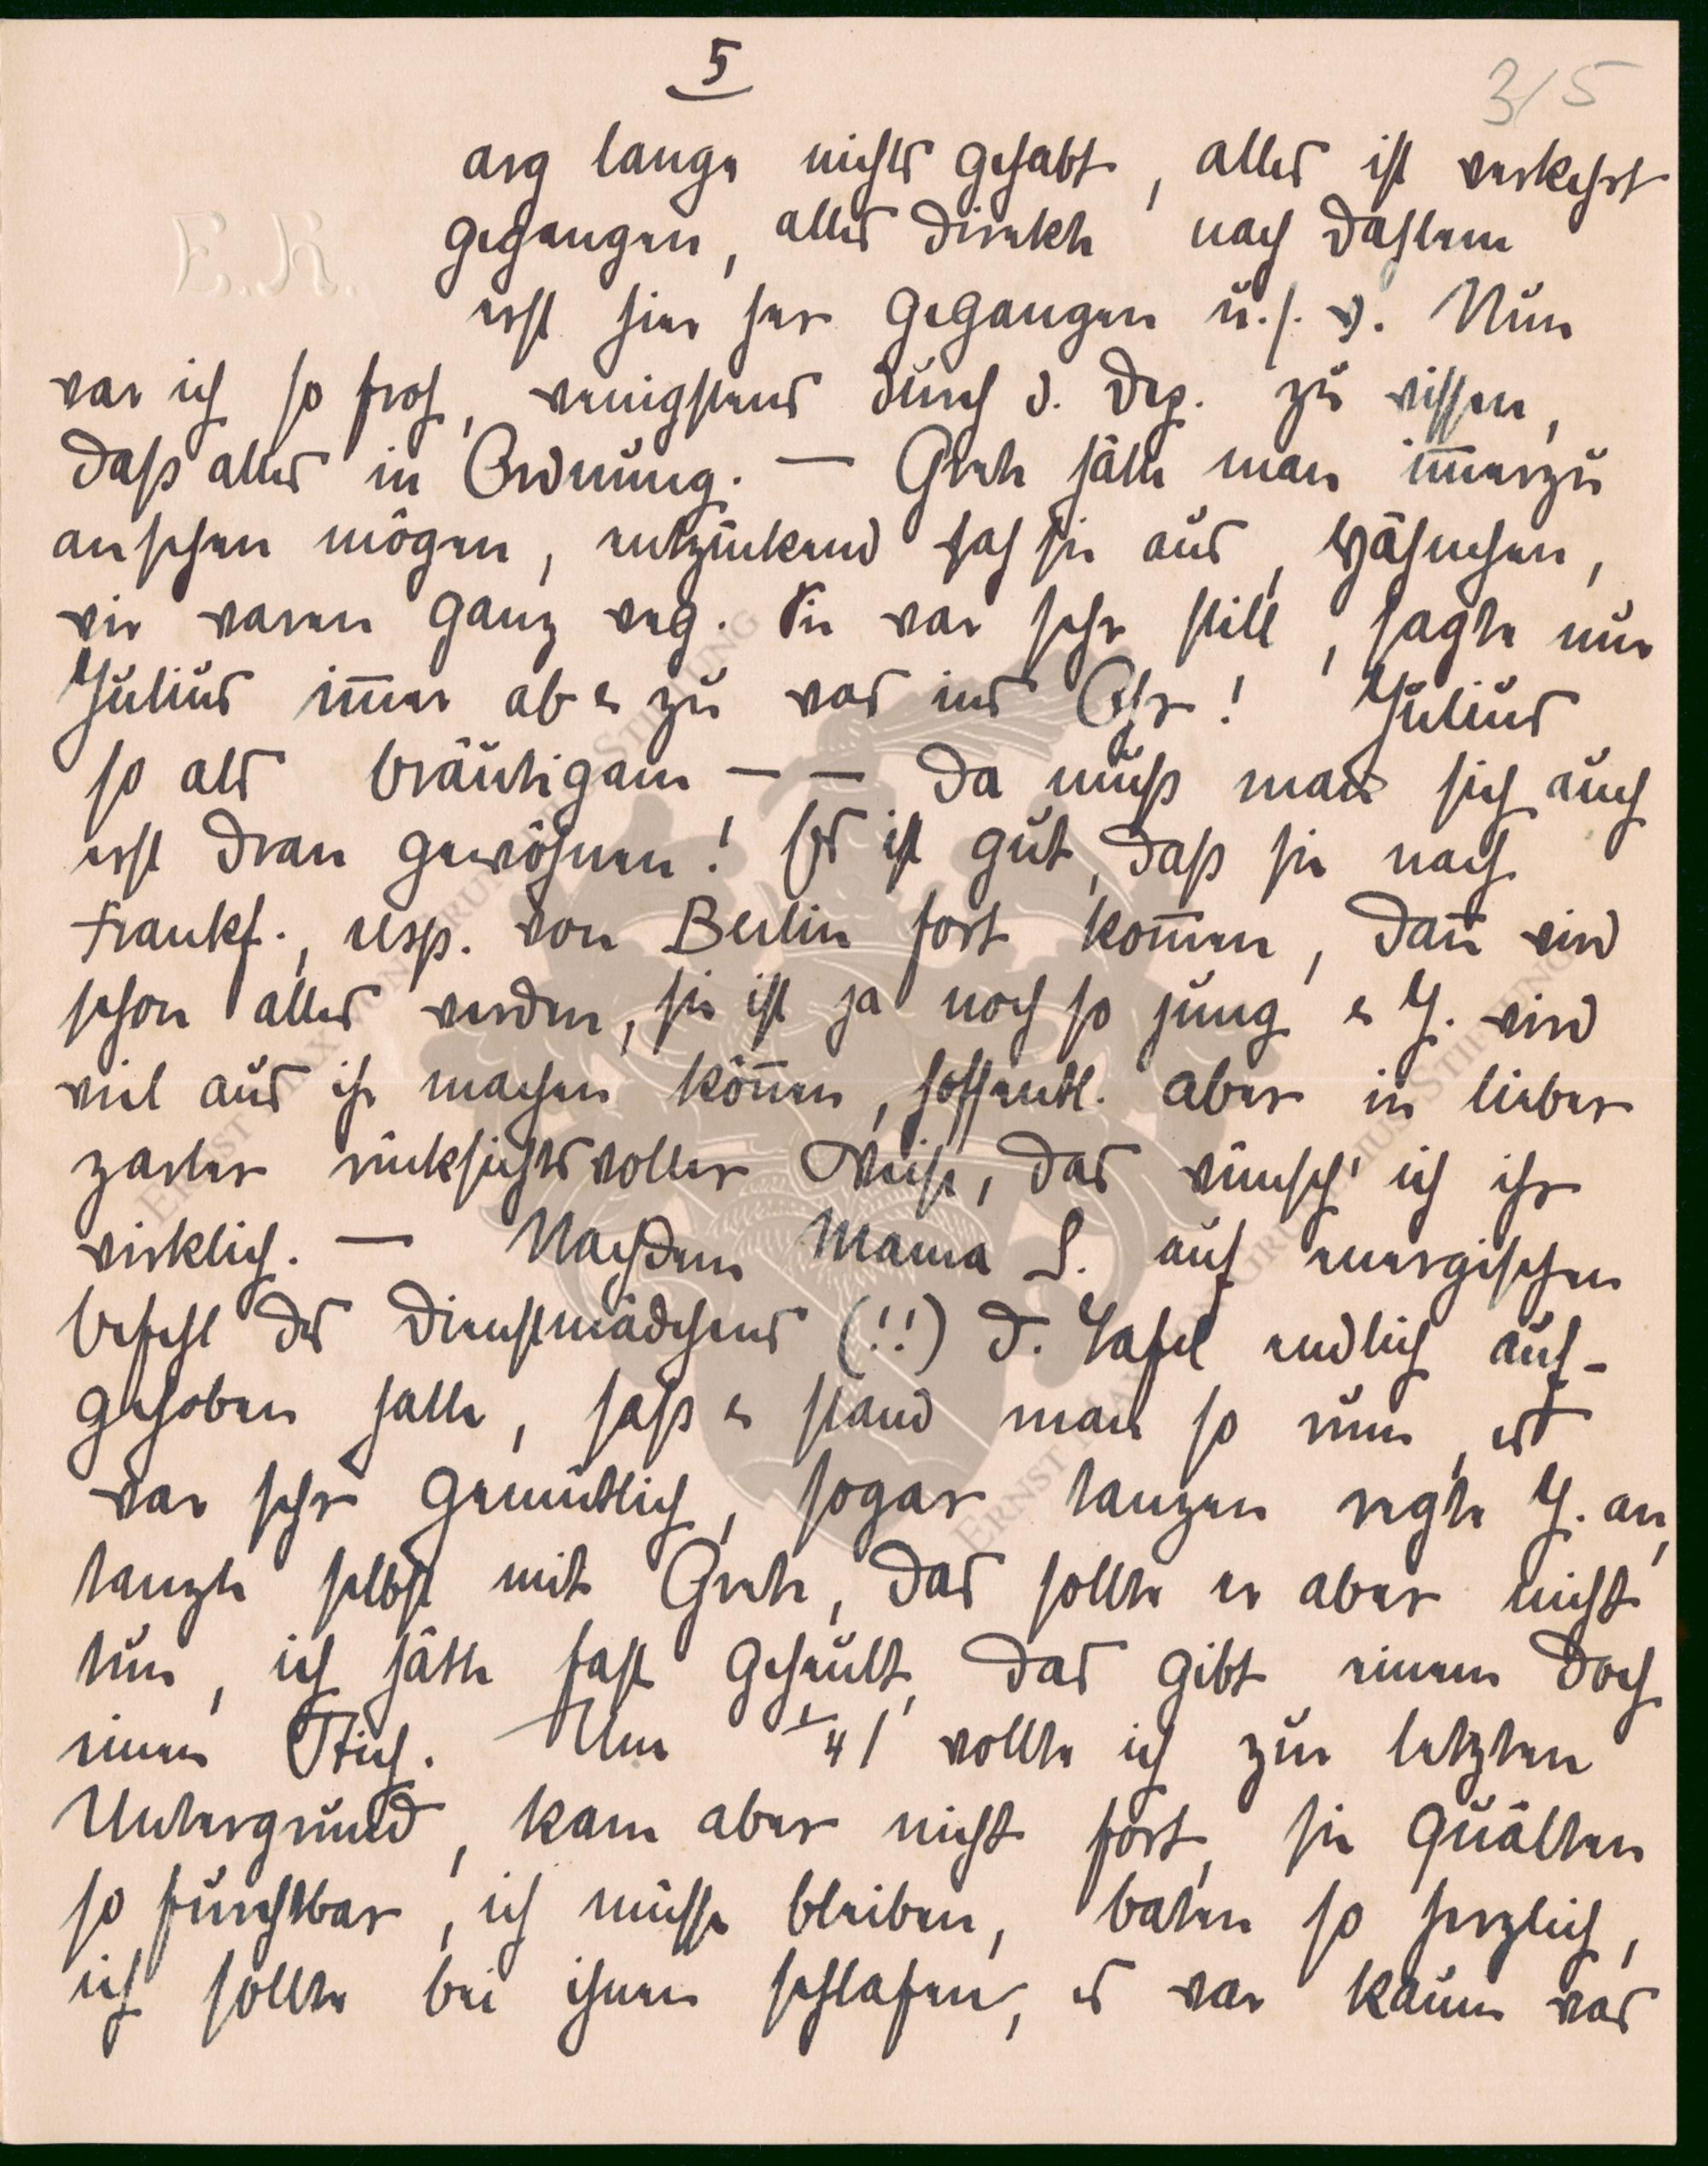 5
3/5
E.K.
arg lange nichts gehabt, alles ist verkehrt
gegangen, alles direkte nach Dahlem
erst hier her gegangen u.s.w. Nun
war ich so froh, wenigstens durch d. Dep. zu wissen,
daß alles in Ordnung. — Grete hätte man im̅erzu
ansehen mögen, entzückend sah sie aus,
wir waren ganz weg. Sie war sehr still, sagte nur
Julius im̅er ab & zu was ins Ohr! Julius
so als Bräutigam — — da muß man sich auch
erst dran gewöhnen! Es ist gut, daß sie nach
Frankf., resp. von Berlin fort kom̅en, dan̅ wird
schon alles werden, sie ist ja noch so jung & J. wird
viel aus ihr machen kön̅en, hoffentl. aber in lieber
zarter rücksichtsvoller Weise, das wünsch' ich ihr
wirklich. — Nachdem Mama L. auf energischen
Befehl des Dienstmädchens (!!) d. Tafel endlich auf-
gehoben hatte, saß & stand man so rum, es
war sehr gemütlich, sogar tanzen regte J. an,
tanzte selbst mit Grete, das sollte er aber nicht
tun, ich hätte fast geheult, das gibt einem doch
einen Stich. Um ¼1 wollte ich zur letzten
Untergrund, kam aber nicht fort, sie quälten
so furchtbar, ich müsse bleiben, baten so herzlich,
ich sollte bei ihnen schlafen, es war kaum was
ERNST MAX VON GRUNELIUS-STIFTUNG
ERNST MAX VON GRUNELIUS-STIFTUNG